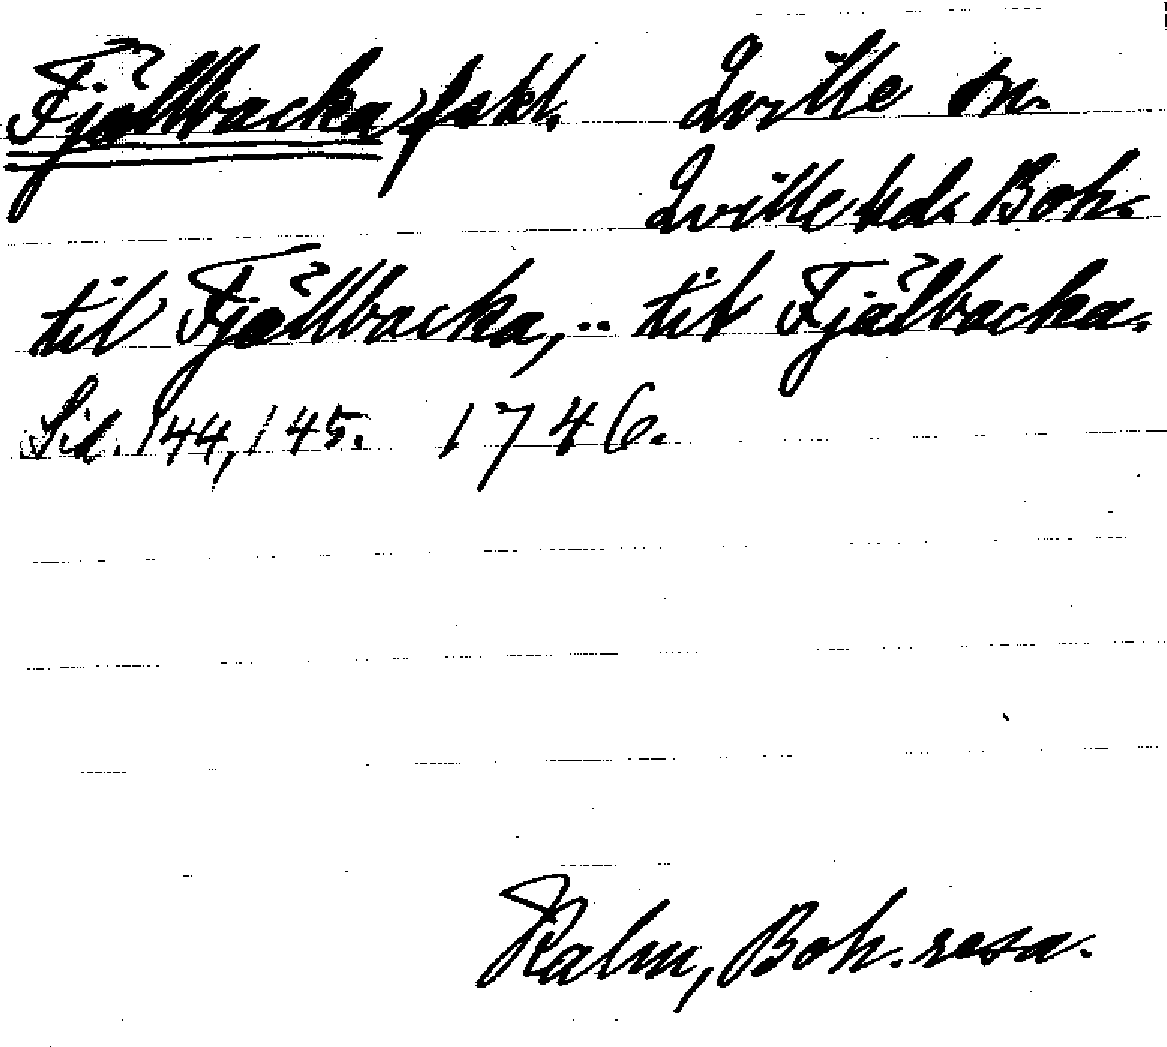 Fjällbacka, fskl. Qville sn.
Qville hd. Boh.
til Fjällbacka, .. til Fjälbacka.
Sid. 144, 145. 1746.
Kalm, Boh. resa.